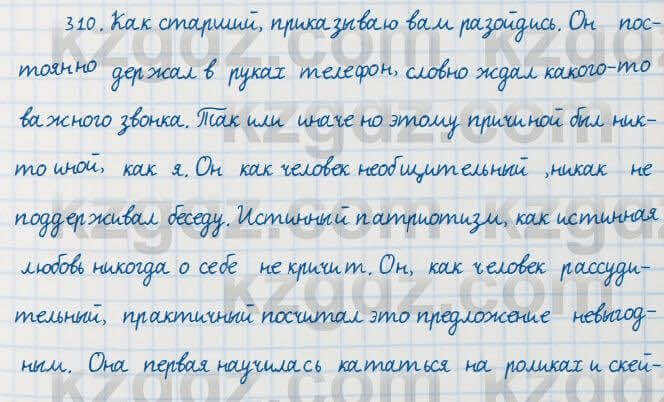 310. Как старший, приказываю вам разойдись. Он пос-
тоянно держал в руках телефон, словно ждал какого-то
важного звонка. Так или иначе но этому причиной был ник-
то иной, как я. Он как человек необщительный ,никак не
поддерживал беседу. Истинный патриотизм, как истинная
любовь никогда о себе не кричит. Он, как человек рассуди-
тельный, практичный посчитал это предложение невыгод-
ным. Она первая научилась кататься на роликах и скей-